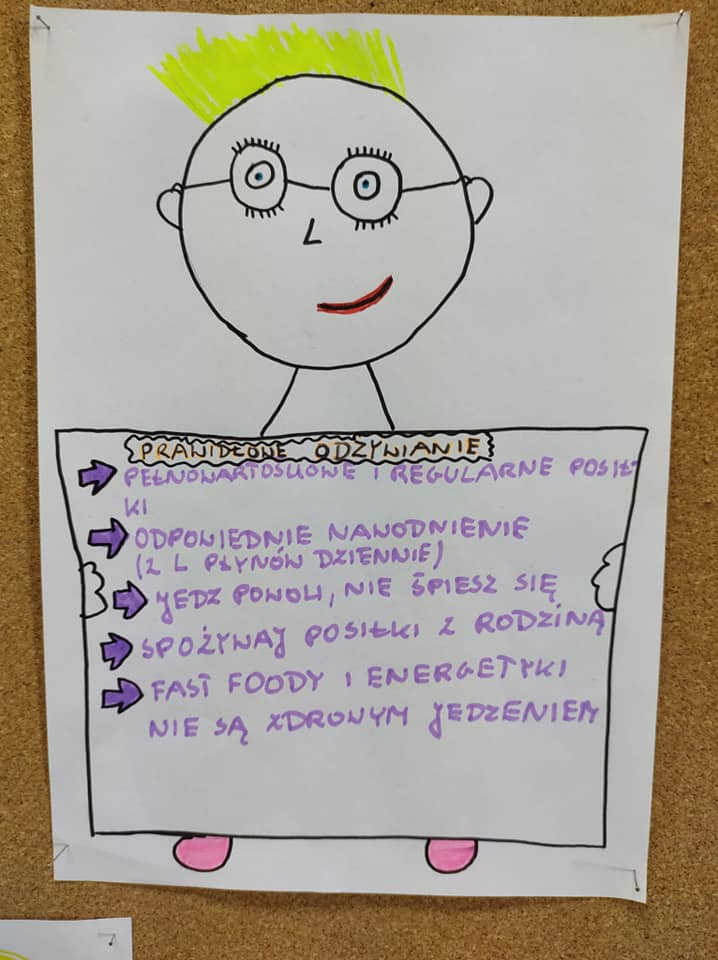 PRAWIDŁOWE ODŻYWIANIE
PEŁNOWARTOŚCIOWE I REGULARNE POSIŁ-
KI
ODPOWIEDNIE NAWODNIENIE
(2 L PŁYNÓW DZIENNIE)
JEDZ POWOLI, NIE ŚPIESZ SIĘ
SPOŻYWAJ POSIŁKI Z RODZINĄ
FAST FOODY I ENERGETYKI
NIE SĄ ZDROWYM JEDZENIEM